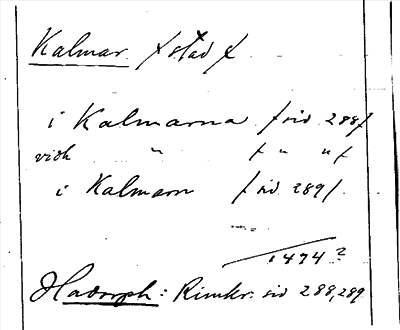 Kalmar /stad/
i Kalmarna /sid 288/
vidh " / " " /
i Kalmarn /sid 289/.
1474?
Hadorph: Rimkr. sid 288, 289